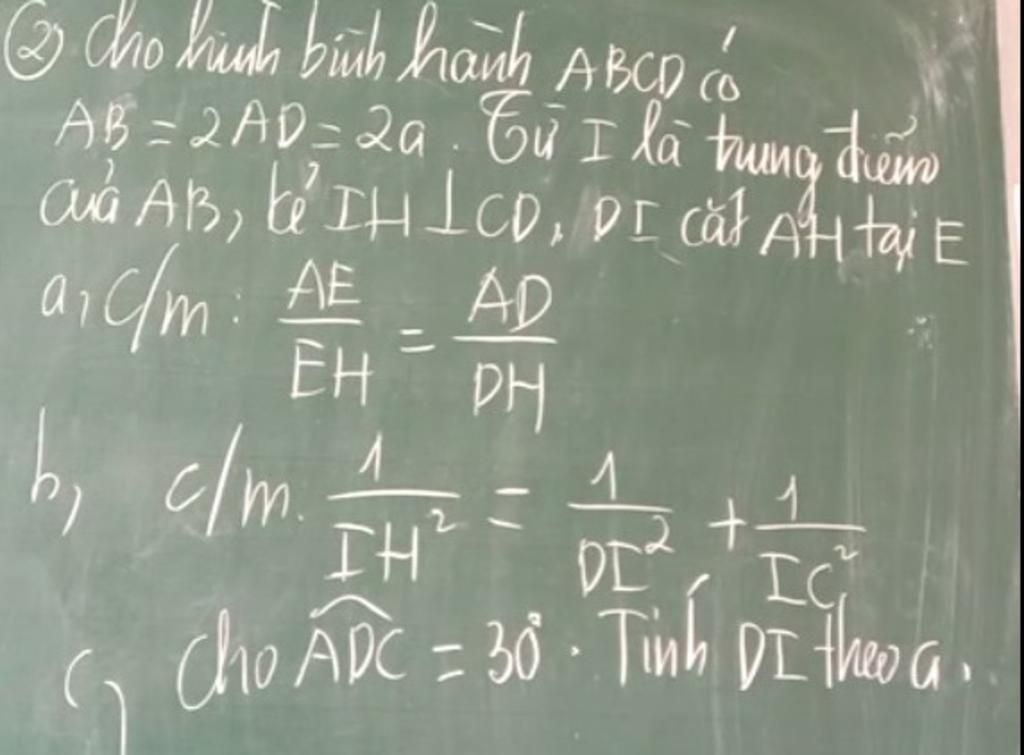 ② Cho hình bình hành ABCD có
AB = 2AD = 2a. Từ I là trung điểm
của AB, kẻ IH ⊥ CD, DI cắt AH tại E
a, C/m: AE/EH = AD/DH
b, c/m. 1/IH² = 1/DI² + 1/IC²
c, Cho \widehat{ADC} = 30°. Tính DI theo a.